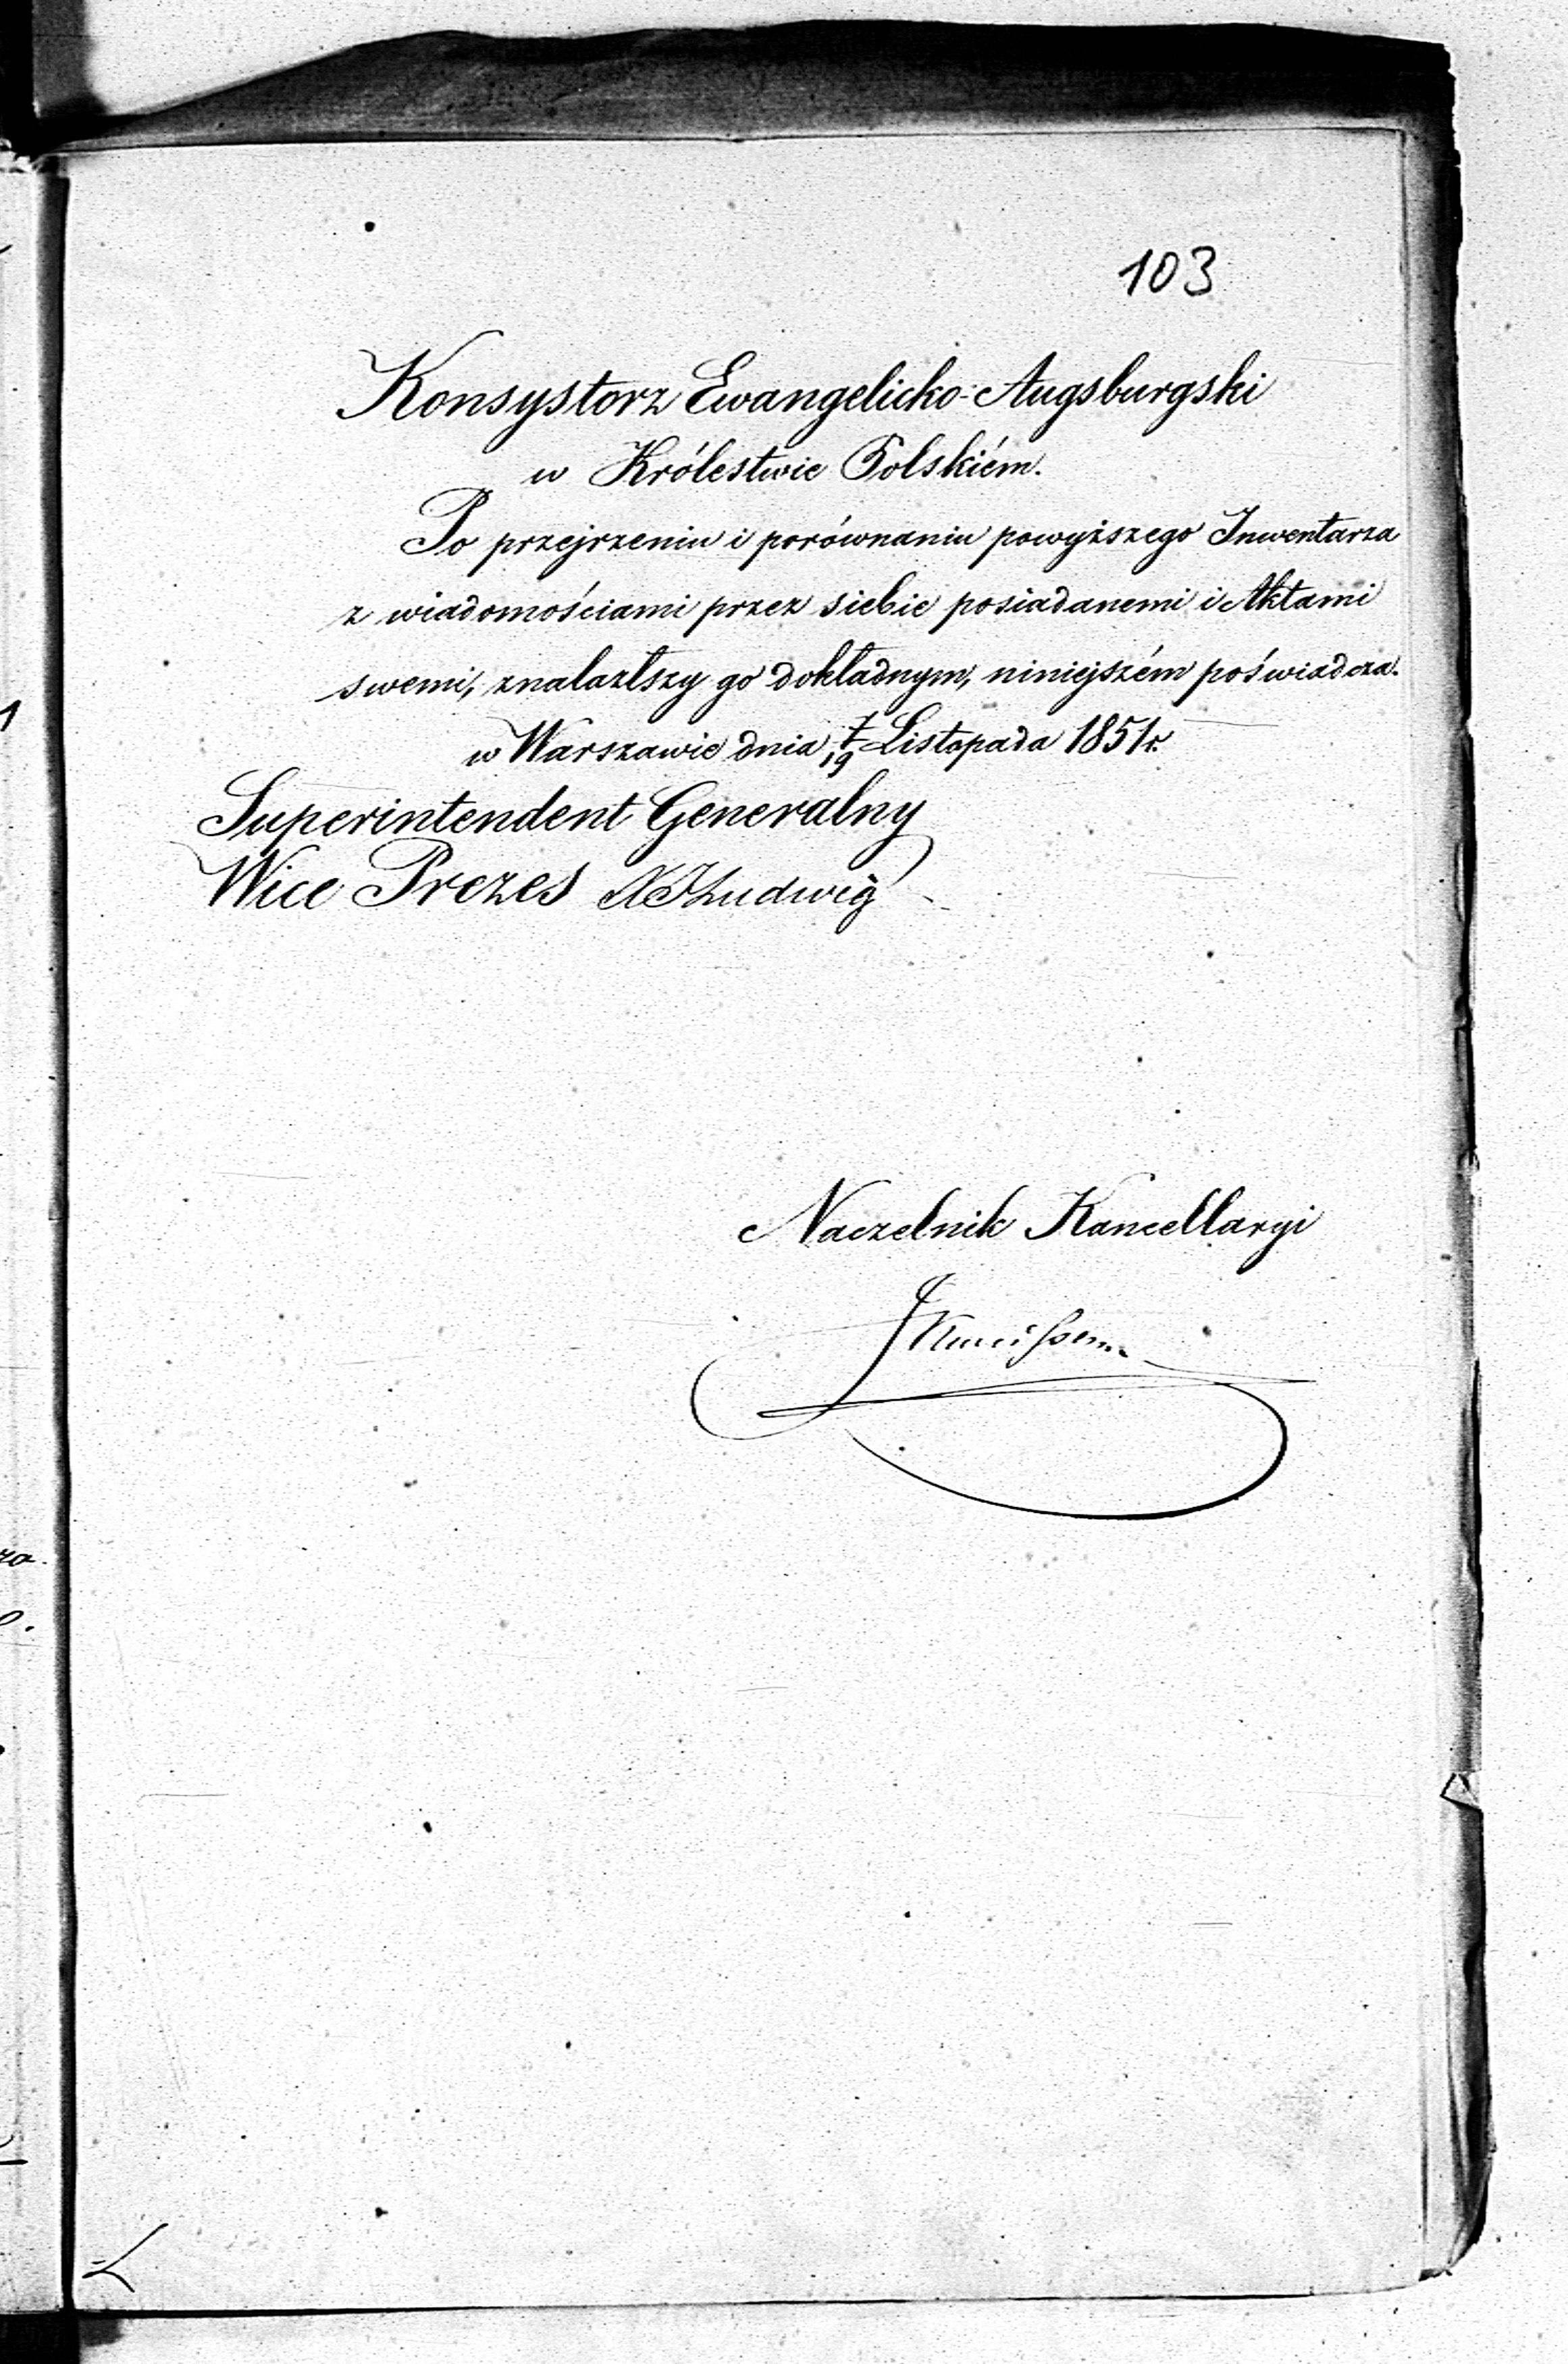 103
Konsystorz Ewangelicko-Augsburgski
w Królestwie Polskiém.
Po przejrzeniu i porównaniu powyższego Inwentarza
z wiadomościami przez siebie posiadanemi i Aktami
swemi, znalazłszy go dokładnym, niniejszém poświadcza.
w Warszawie dnia 7/19 Listopada 1851 r.
Superintendent Generalny
Wice Prezes Ludwig
Naczelnik Kancellaryi